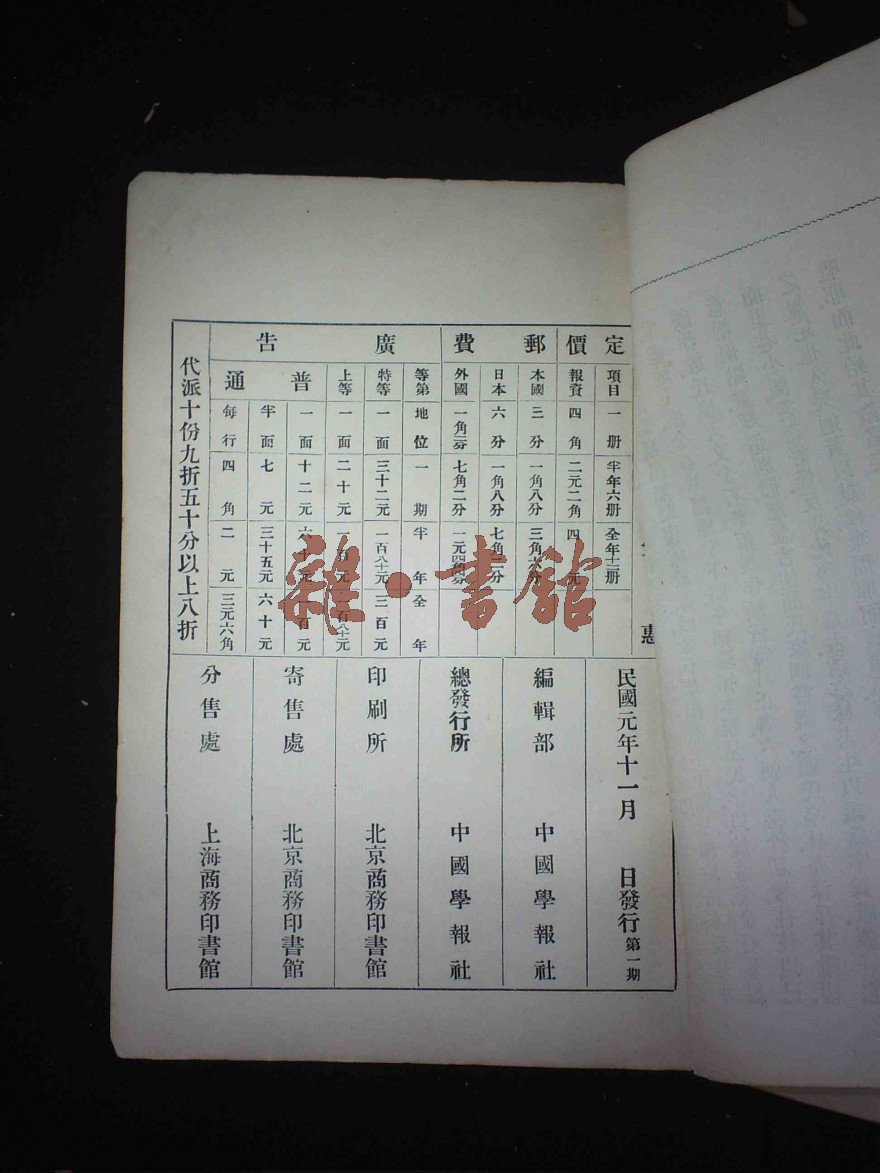 定價
項目 一册 半年六册 全年十二册
報資 四角 二元二角 四元
郵費
本國 三分 一角八分 三角六分
日本 六分 一角八分 七角二分
外國 七角二分
廣告
等第 地位 一期 半年 全年
特等 一面 三十二元 一百八十元 三百元
上等 一面 二十元 一百元 一百八十元
普通
一面 十二元 六十元 一百元
半面 七元 三十五元 六十元
每行 四角 二元 三元六角
代派十份九折五十分以上八折
惠
民國元年十一月 日發行 第一期
編輯部 中國學報社
總發行所 中國學報社
印刷所 北京商務印書館
寄售處 北京商務印書館
分售處 上海商務印書館
雜·書館